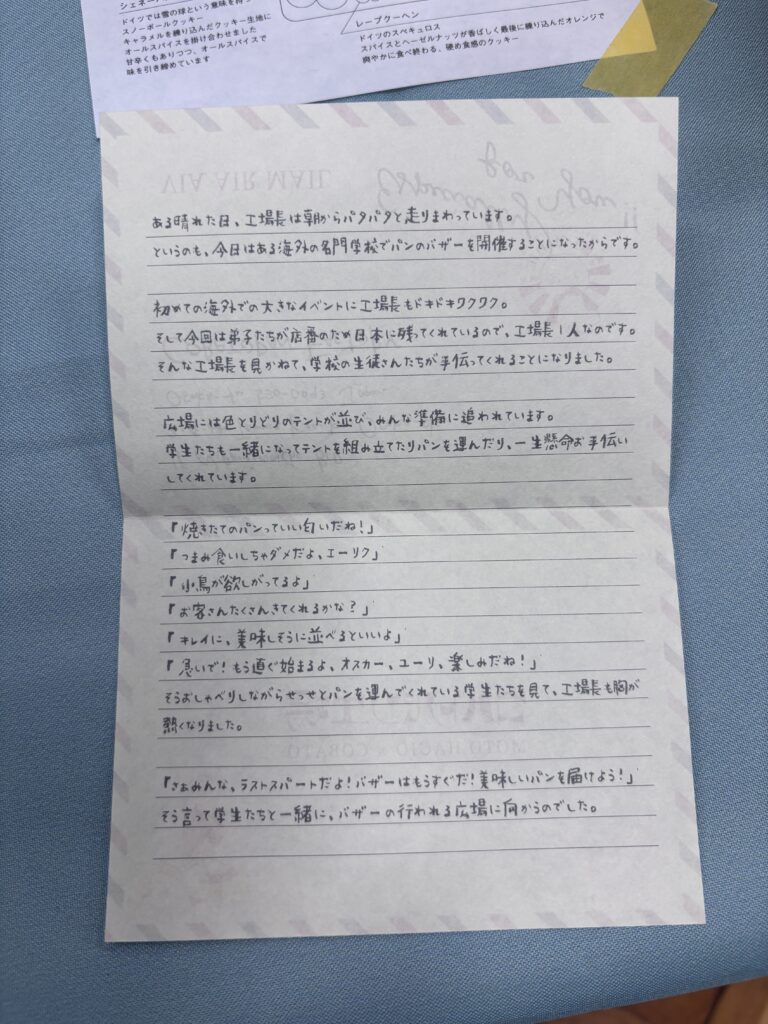 シェネー
ドイツでは雪の球という意味を持つ
スノーボールクッキー
キャラメルを練り込んだクッキー生地に
オールスパイスを掛け合わせました
甘辛くもありつつ、オールスパイスで
味を引き締めています
レープクーヘン
ドイツのスペキュロス
スパイスとヘーゼルナッツが香ばしく最後に練り込んだオレンジで
爽やかに食べ終わる、硬め食感のクッキー
VIA AIR MAIL
ある晴れた日、工場長は朝からバタバタと走りまわっています。
というのも、今日はある海外の名門学校でパンのバザーを開催することになったからです。
初めての海外での大きなイベントに工場長もドキドキワクワク。
そして今回は弟子たちが店番のため日本に残ってくれているので、工場長1人なのです。
そんな工場長を見かねて、学校の生徒さんたちが手伝ってくれることになりました。
広場には色とりどりのテントが並び、みんな準備に追われています。
学生たちも一緒になってテントを組み立てたりパンを運んだり、一生懸命お手伝い
してくれています。
「焼きたてのパンっていい匂いだね!」
「つまみ食いしちゃダメだよ、エーリク」
「小鳥が欲しがってるよ」
「お客さんたくさんきてくれるかな?」
「キレイに、美味しそうに並べるといいよ」
「急いで!もう直ぐ始まるよ、オスカー、ユーリ、楽しみだね!」
そうおしゃべりしながらせっせとパンを運んでくれている学生たちを見て、工場長も胸が
熱くなりました。
MOTO HAGIO × COBATO
「さぁみんな、ラストスパートだよ!バザーはもうすぐだ!美味しいパンを届けよう!」
そう言って学生たちと一緒に、バザーの行われる広場に向かうのでした。